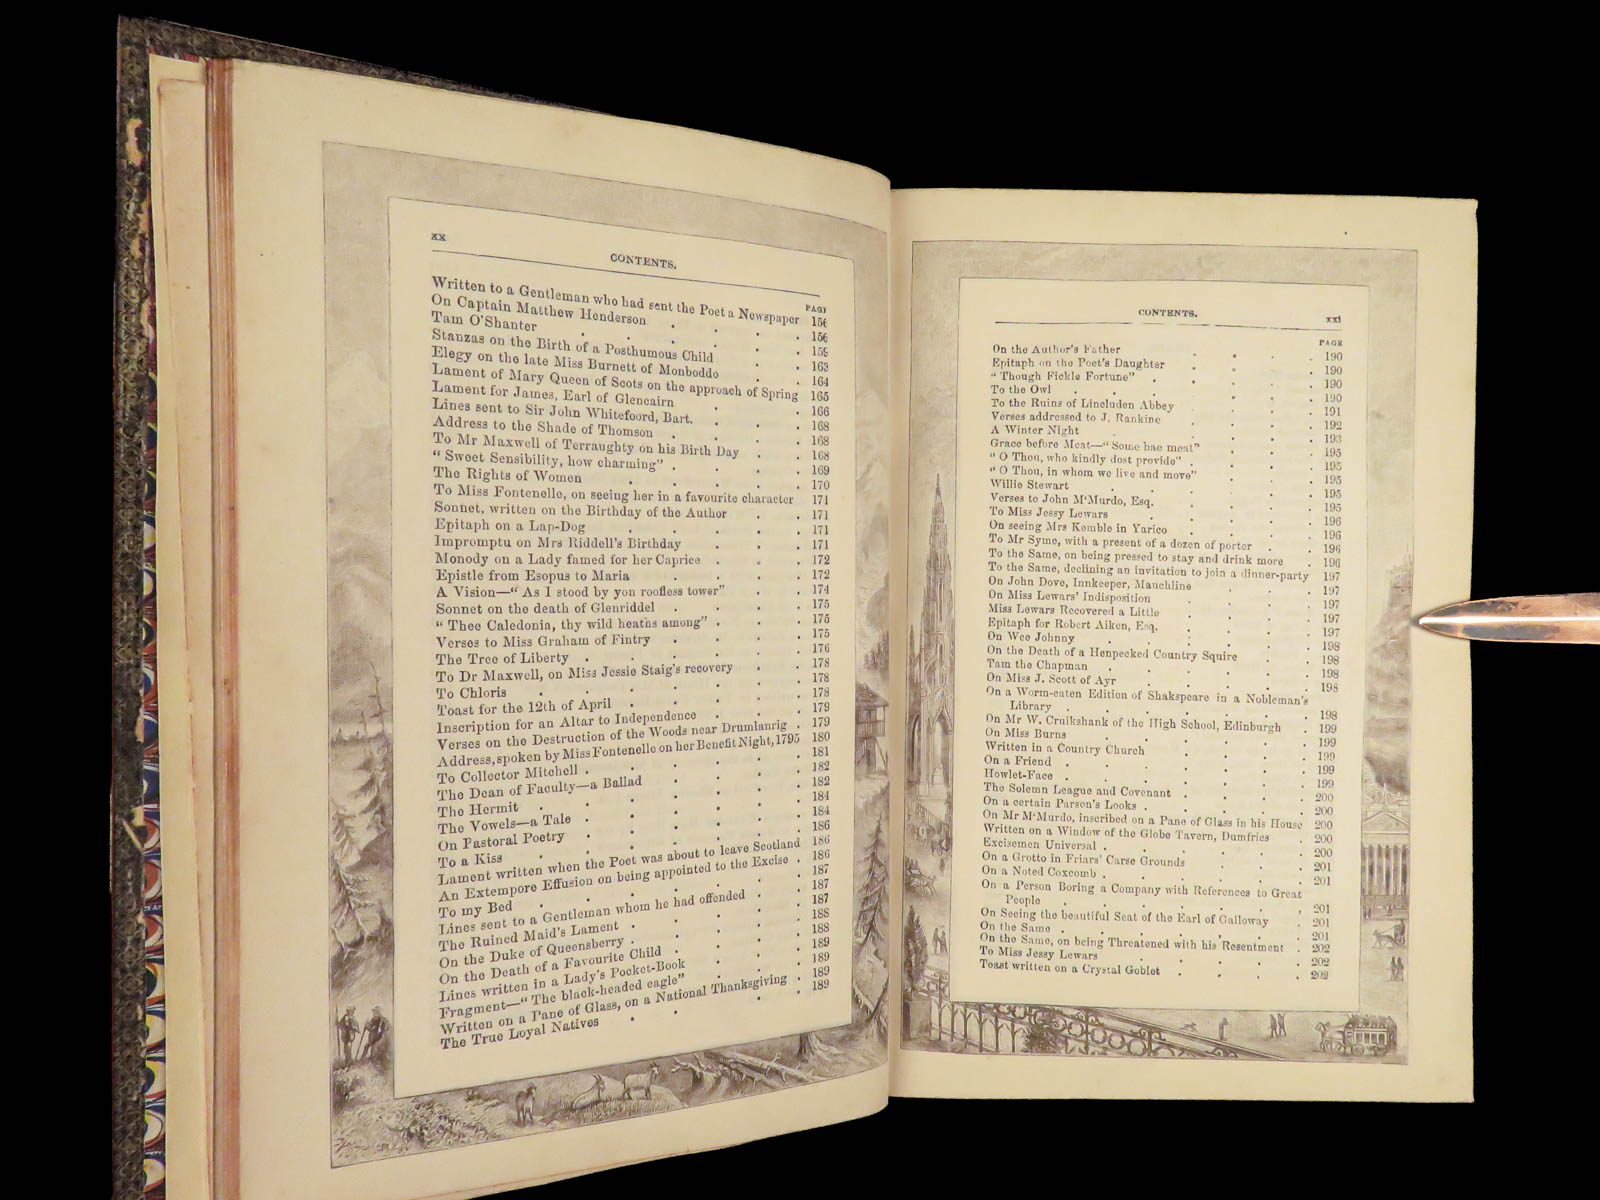 xx
CONTENTS.
PAGE
Written to a Gentleman who had sent the Poet a Newspaper 156
On Captain Matthew Henderson . . . . 156
Tam O'Shanter . . . . 159
Stanzas on the Birth of a Posthumous Child . . 163
Elegy on the late Miss Burnett of Monboddo . . 164
Lament of Mary Queen of Scots on the approach of Spring 165
Lament for James, Earl of Glencairn . . 166
Lines sent to Sir John Whitefoord, Bart. . . . 168
Address to the Shade of Thomson . . . . 168
To Mr Maxwell of Terraughty on his Birth Day . . 168
“ Sweet Sensibility, how charming” . . . . 169
The Rights of Women . . . . . 170
To Miss Fontenelle, on seeing her in a favourite character 171
Sonnet, written on the Birthday of the Author . . 171
Epitaph on a Lap-Dog . . . . . 171
Impromptu on Mrs Riddell's Birthday . . . 171
Monody on a Lady famed for her Caprice . . . 172
Epistle from Esopus to Maria . . . . 172
A Vision—“ As I stood by yon roofless tower” . . 174
Sonnet on the death of Glenriddel . . . . 175
“ Thee Caledonia, thy wild heaths among” . . . 175
Verses to Miss Graham of Fintry . . . . 175
The Tree of Liberty . . . . . . 176
To Dr Maxwell, on Miss Jessie Staig's recovery . . 178
To Chloris . . . . . . . 178
Toast for the 12th of April . . . . . 178
Inscription for an Altar to Independence . . . 179
Verses on the Destruction of the Woods near Drumlanrig . 179
Address, spoken by Miss Fontenelle on her Benefit Night, 1795 180
To Collector Mitchell . . . . . . 181
The Dean of Faculty—a Ballad . . . . 182
The Hermit . . . . . . . 182
The Vowels—a Tale . . . . . . 184
On Pastoral Poetry . . . . . . 184
To a Kiss . . . . . . . 186
Lament written when the Poet was about to leave Scotland 186
An Extempore Effusion on being appointed to the Excise . 186
To my Bed . . . . . . . 187
Lines sent to a Gentleman whom he had offended . . 187
The Ruined Maid's Lament . . . . . 187
On the Duke of Queensberry . . . . . 188
On the Death of a Favourite Child . . . . 188
Lines written in a Lady's Pocket-Book . . . 189
Fragment—“ The black-headed eagle” . . . 189
Written on a Pane of Glass, on a National Thanksgiving . 189
The True Loyal Natives . . . . . 189
CONTENTS.
xxi
PAGE
On the Author's Father . . . . 190
Epitaph on the Poet's Daughter . . . . 190
“ Though Fickle Fortune” . . . . . 190
To the Owl . . . . . . 190
To the Ruins of Lincluden Abbey . . . . 191
Verses addressed to J. Rankine . . . . 192
A Winter Night . . . . . 193
Grace before Meat—“ Some hae meat” . . . 195
“ O Thou, who kindly dost provide” . . . . 195
“ O Thou, in whom we live and move” . . . 195
Willie Stewart . . . . . 195
Verses to John M‘Murdo, Esq. . . . . 195
To Miss Jessy Lewars . . . . . 196
On seeing Mrs Kemble in Yarico . . . . 196
To Mr Syme, with a present of a dozen of porter . . 196
To the Same, on being pressed to stay and drink more . 196
To the Same, declining an invitation to join a dinner-party 197
On John Dove, Innkeeper, Mauchline . . . 197
On Miss Lewars' Indisposition . . . . 197
Miss Lewars Recovered a Little . . . . 197
Epitaph for Robert Aiken, Esq. . . . . 197
On Wee Johnny . . . . . 198
On the Death of a Henpecked Country Squire . . 198
Tam the Chapman . . . . . 198
On Miss J. Scott of Ayr . . . . . 198
On a Worm-eaten Edition of Shakspeare in a Nobleman's
Library . . . . . . . 198
On Mr W. Cruikshank of the High School, Edinburgh . 199
On Miss Burns . . . . . 199
Written in a Country Church . . . . 199
On a Friend . . . . . . . 199
Howlet-Face . . . . . . . 199
The Solemn League and Covenant . . . . 200
On a certain Parson's Looks . . . . . 200
On Mr M‘Murdo, inscribed on a Pane of Glass in his House 200
Written on a Window of the Globe Tavern, Dumfries . 200
Excisemen Universal . . . . . . 200
On a Grotto in Friars' Carse Grounds . . . 201
On a Noted Coxcomb . . . . . . 201
On a Person Boring a Company with References to Great
People . . . . . . . 201
On Seeing the beautiful Seat of the Earl of Galloway . 201
On the Same . . . . . . . 201
On the Same, on being Threatened with his Resentment . 202
To Miss Jessy Lewars . . . . . 202
Toast written on a Crystal Goblet . . . . 202